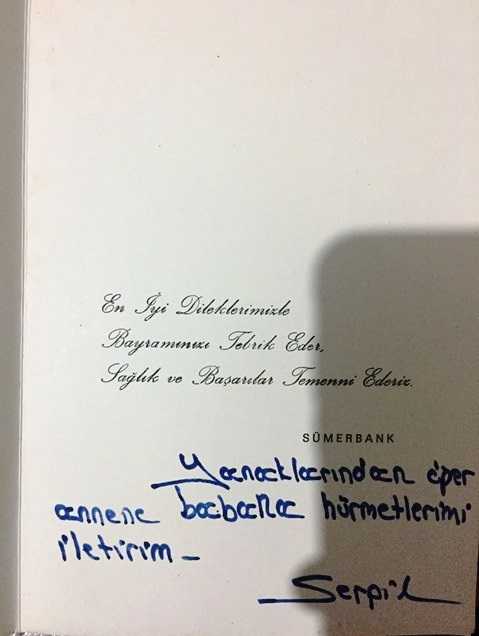 En İyi Dileklerimizle
Bayramınızı Tebrik Eder,
Sağlık ve Başarılar Temenni Ederiz.
SÜMERBANK
Yanaklarından öper
annene babana hürmetlerimi
iletirim -
Serpil